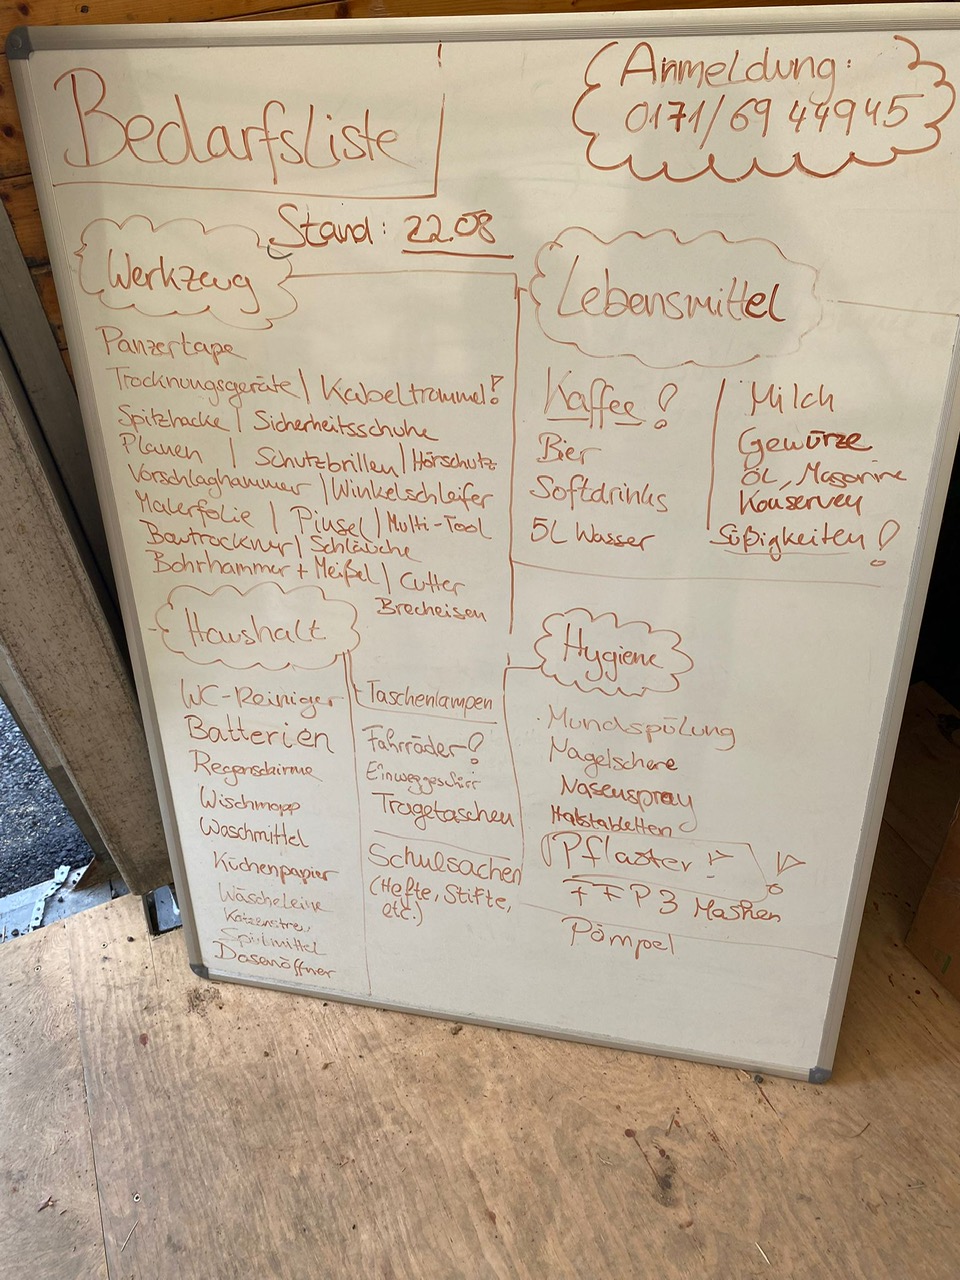 Bedarfsliste
Anmeldung:
0171/69 44945
Stand: 22.08
Werkzeug
Panzertape
Trocknungsgeräte | Kabeltrommel!
Spitzhacke | Sicherheitsschuhe
Planen | Schutzbrillen | Hörschutz
Vorschlaghammer | Winkelschleifer
Malerfolie | Pinsel | Multi-Tool
Bautrockner | Schläuche
Bohrhammer + Meißel | Cutter
Brecheisen
Lebensmittel
Kaffee!
Bier
Softdrinks
5L Wasser
Milch
Gewürze
Öl, Magarine
Konserven
Süßigkeiten!
Haushalt
WC-Reiniger
Batterien
Regenschirme
Wischmopp
Waschmittel
Küchenpapier
Wäscheleine
Katzenstreu
Spülmittel
Dosenöffner
Taschenlampen
Fahrräder!
Einweggeschirr
Tragetaschen
Schulsachen
(Hefte, Stifte,
etc.)
Hygiene
Mundspülung
Nagelschere
Nasenspray
Halstabletten
Pflaster!
FFP3 Masken
Pömpel